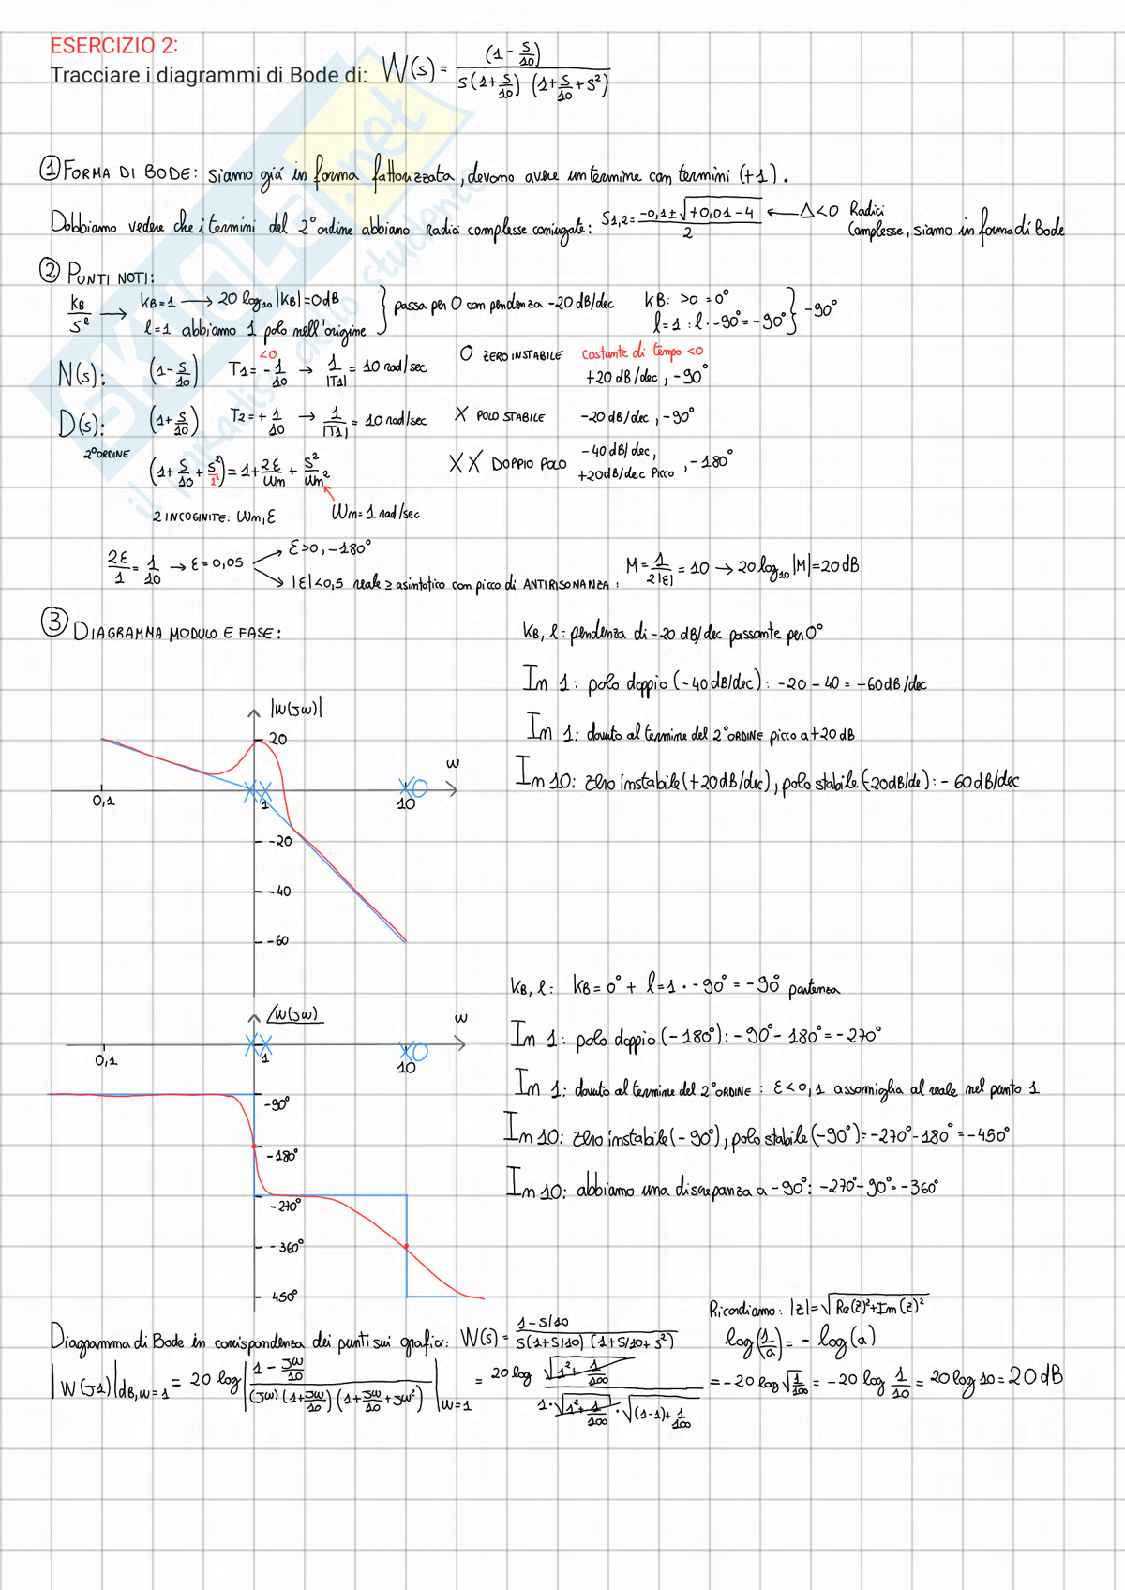 ESERCIZIO 2:
Tracciare i diagrammi di Bode di: W(s) = (1 - s/10) / s(1 + s/10) (1 + s/10 + s²)
① FORMA DI BODE: siamo già in forma fattorizzata, devono avere un termine con termini (+1).
Dobbiamo vedere che i termini del 2° ordine abbiano radici complesse coniugate: S1,2 = (-0,1 ± √(+0,01 - 4)) / 2 ← Δ<0 Radici
Complesse, siamo in forma di Bode
② PUNTI NOTI:
KB/Sˡ → KB=1 → 20 log10 |KB| = 0dB } passa per 0 con pendenza -20 dB/dec KB: >0 = 0° } -90°
l=1 abbiamo 1 polo nell'origine l=1 : l · -90° = -90°
<0
N(s): (1 - s/10) T1 = -1/10 → 1/|T1| = 10 rad/sec O ZERO INSTABILE costante di tempo <0
+20 dB/dec, -90°
D(s): (1 + s/10) T2 = +1/10 → 1/|T1| = 10 rad/sec X POLO STABILE -20 dB/dec, -90°
2° ORDINE (1 + s/10 + s²/1²) = 1 + 2ξ/ωm + s²/ωm² XX DOPPIO POLO -40 dB/dec, +20dB/dec Picco, -180°
2 INCOGNITE: ωm, ξ ωm = 1 rad/sec
2ξ/1 = 1/10 → ξ = 0,05 → ξ>0, -180°
→ |ξ|<0,5 reale ≥ asintotico con picco di ANTIRISONANZA: M = 1/2|ξ| = 10 → 20 log10 |M| = 20 dB
③ DIAGRAMMA MODULO E FASE:
KB, l: pendenza di -20 dB/dec passante per 0°
In 1: polo doppio (-40 dB/dec): -20 - 40 = -60 dB/dec
In 1: dovuto al termine del 2° ORDINE picco a +20 dB
In 10: zero instabile (+20 dB/dec), polo stabile (-20dB/de): - 60 dB/dec
|W(jω)|
20
ω
0,1
1
10
-20
-40
-60
KB, l: KB = 0° + l=1 · -90° = -90° partenza
In 1: polo doppio (-180°): -90° - 180° = -270°
In 1: dovuto al termine del 2° ORDINE: ξ < 0,1 assomiglia al reale nel punto 1
In 10: zero instabile (-90°), polo stabile (-90°) = -270° - 180° = -450°
In 10: abbiamo una discrepanza a -90°: -270° - 90° = -360°
∠W(jω)
ω
0,1
1
10
-90°
-180°
-270°
-360°
450°
Ricordiamo: |z| = √(Re(z)² + Im(z)²)
Diagramma di Bode in corrispondenza dei punti sui grafici: W(s) = (1 - s/10) / s(1 + s/10) (1 + s/10 + s²) log(1/a) = - log(a)
|W(j1)|dB, ω=1 = 20 log |(1 - jω/10) / (jω) (1 + jω/10) (1 + jω/10 + jω²)| ω=1 = 20 log √(1² + 1/100) / 1·√(1² + 1/100) · √((1-1) + 1/100) = -20 log √(1/100) = -20 log 1/10 = 20 log 10 = 20 dB
SKUOLA.net